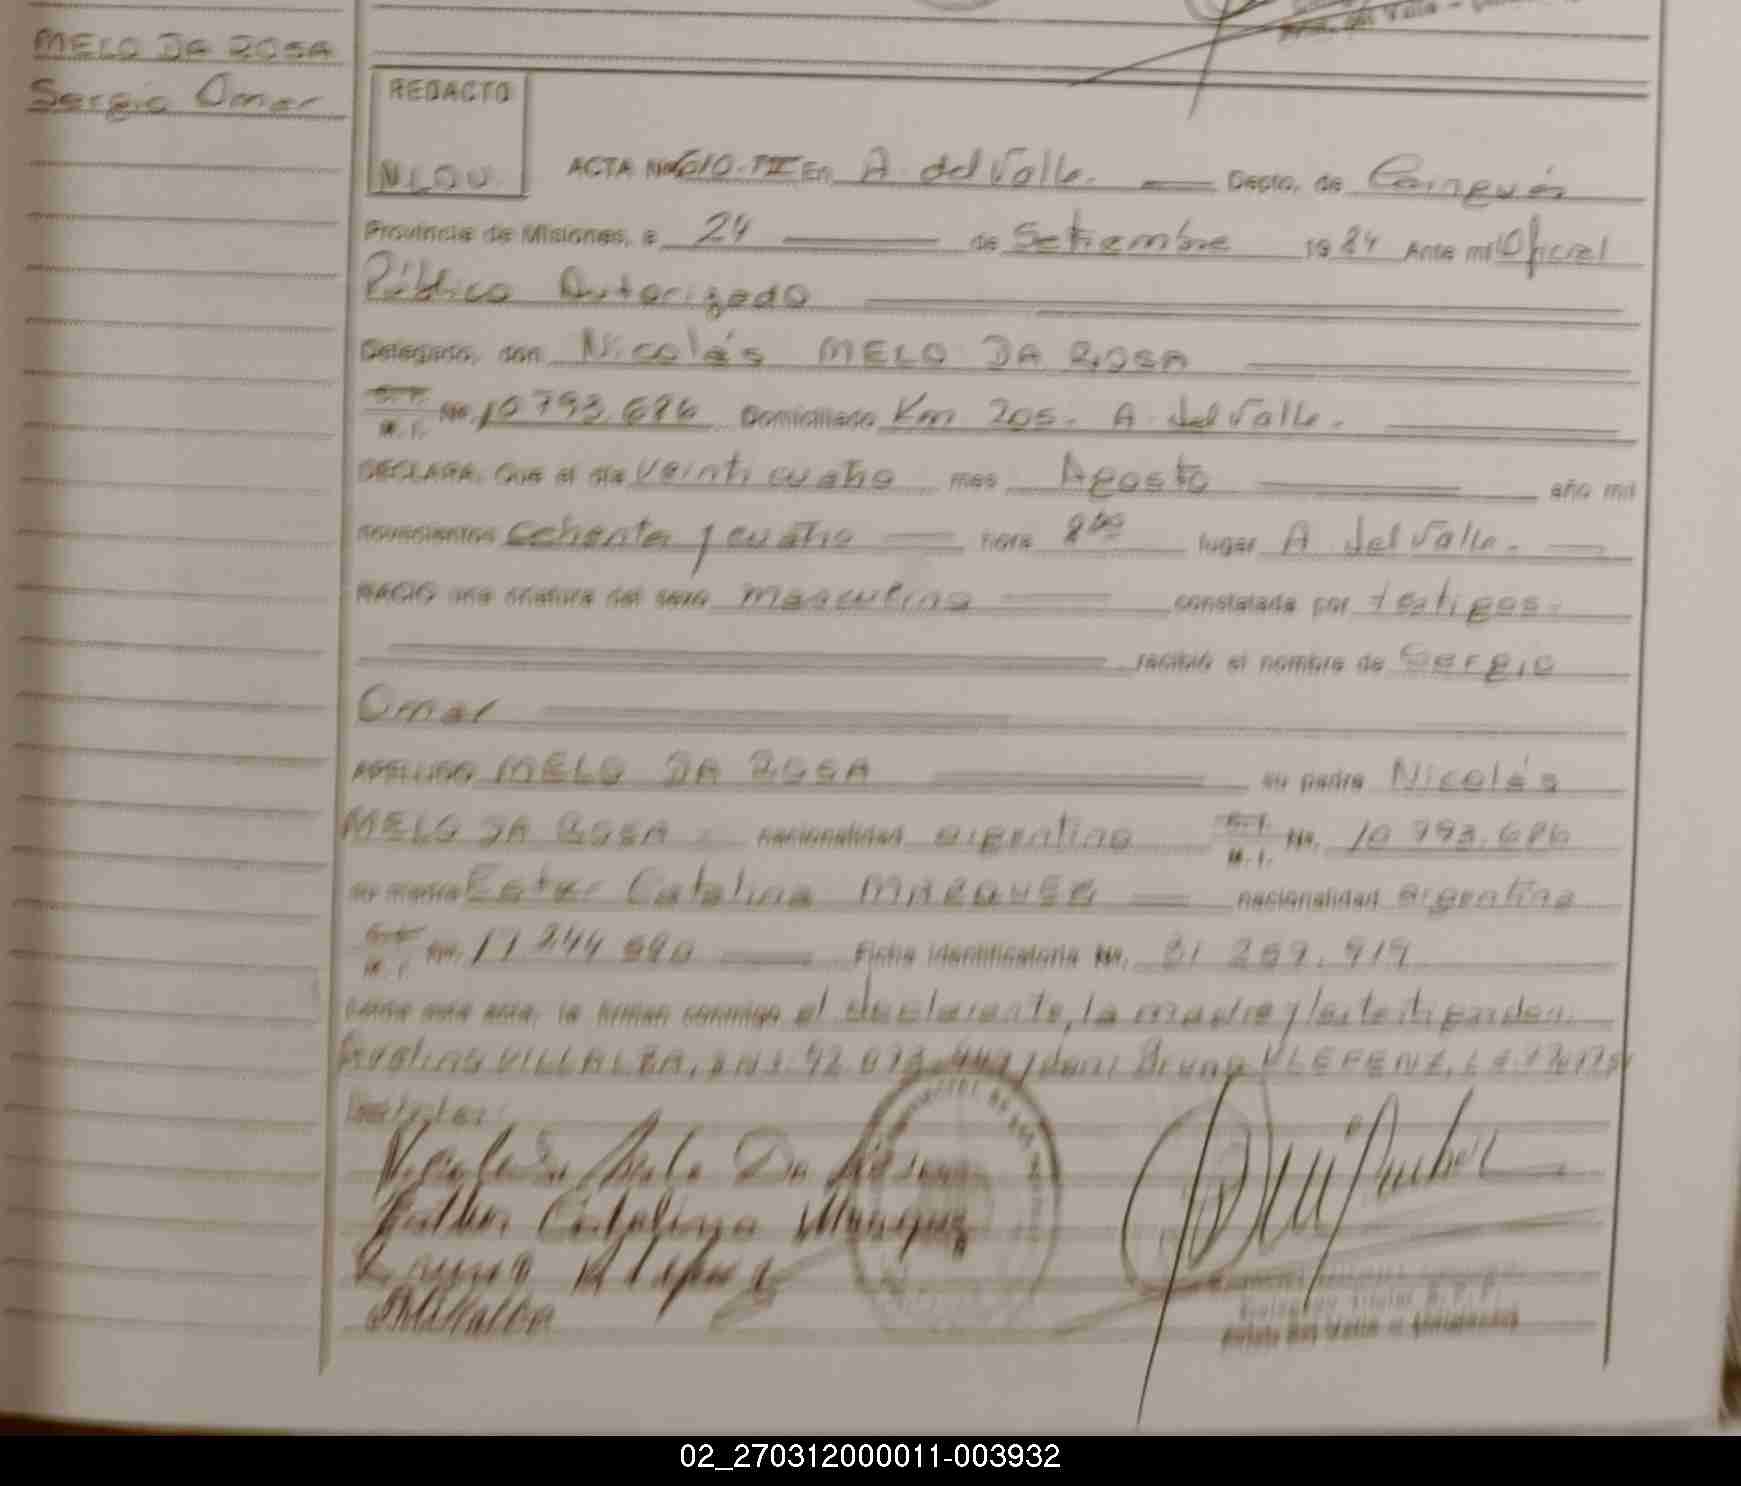 MELO DA ROSA
Sergio Omar
REDACTO
N.L.O.V.
ACTA Nº 610-TII En A. del Valle. Depto. de Cainguás
Provincia de Misiones, a 24 de Setiembre 1984 Ante mi Oficial
Público Autorizado
Delegado, don Nicolás MELO DA ROSA
M.I. No. 10793.686 Domiciliado Km 205. A. del Valle.
DECLARA: Que el día veinticuatro mes Agosto año mil
novecientos ochenta y cuatro hora 8 lugar A. del Valle.
NACIO una criatura del sexo masculino constatada por testigos.
recibió el nombre de Sergio
Omar
APELLIDO MELO DA ROSA su padre Nicolás
MELO DA ROSA nacionalidad argentino M.I. No. 10 793.686
su madre Ester Catalina MARQUES nacionalidad argentina
M.I. No. 17 244 Ficha Identificatoria No. 31 269.919
Leída esta acta, la firman conmigo el declarante, la madre y
VILLALBA, D.N.I. 92.073. y don: Bruno KLEFENZ, L.E.
Nicolas Melo Da Rosa
Esther Catalina Marquez
Bruno
Villalba
Delegado Titular R.P.P.
Aristo del Valle - (Misiones)
02_270312000011-003932